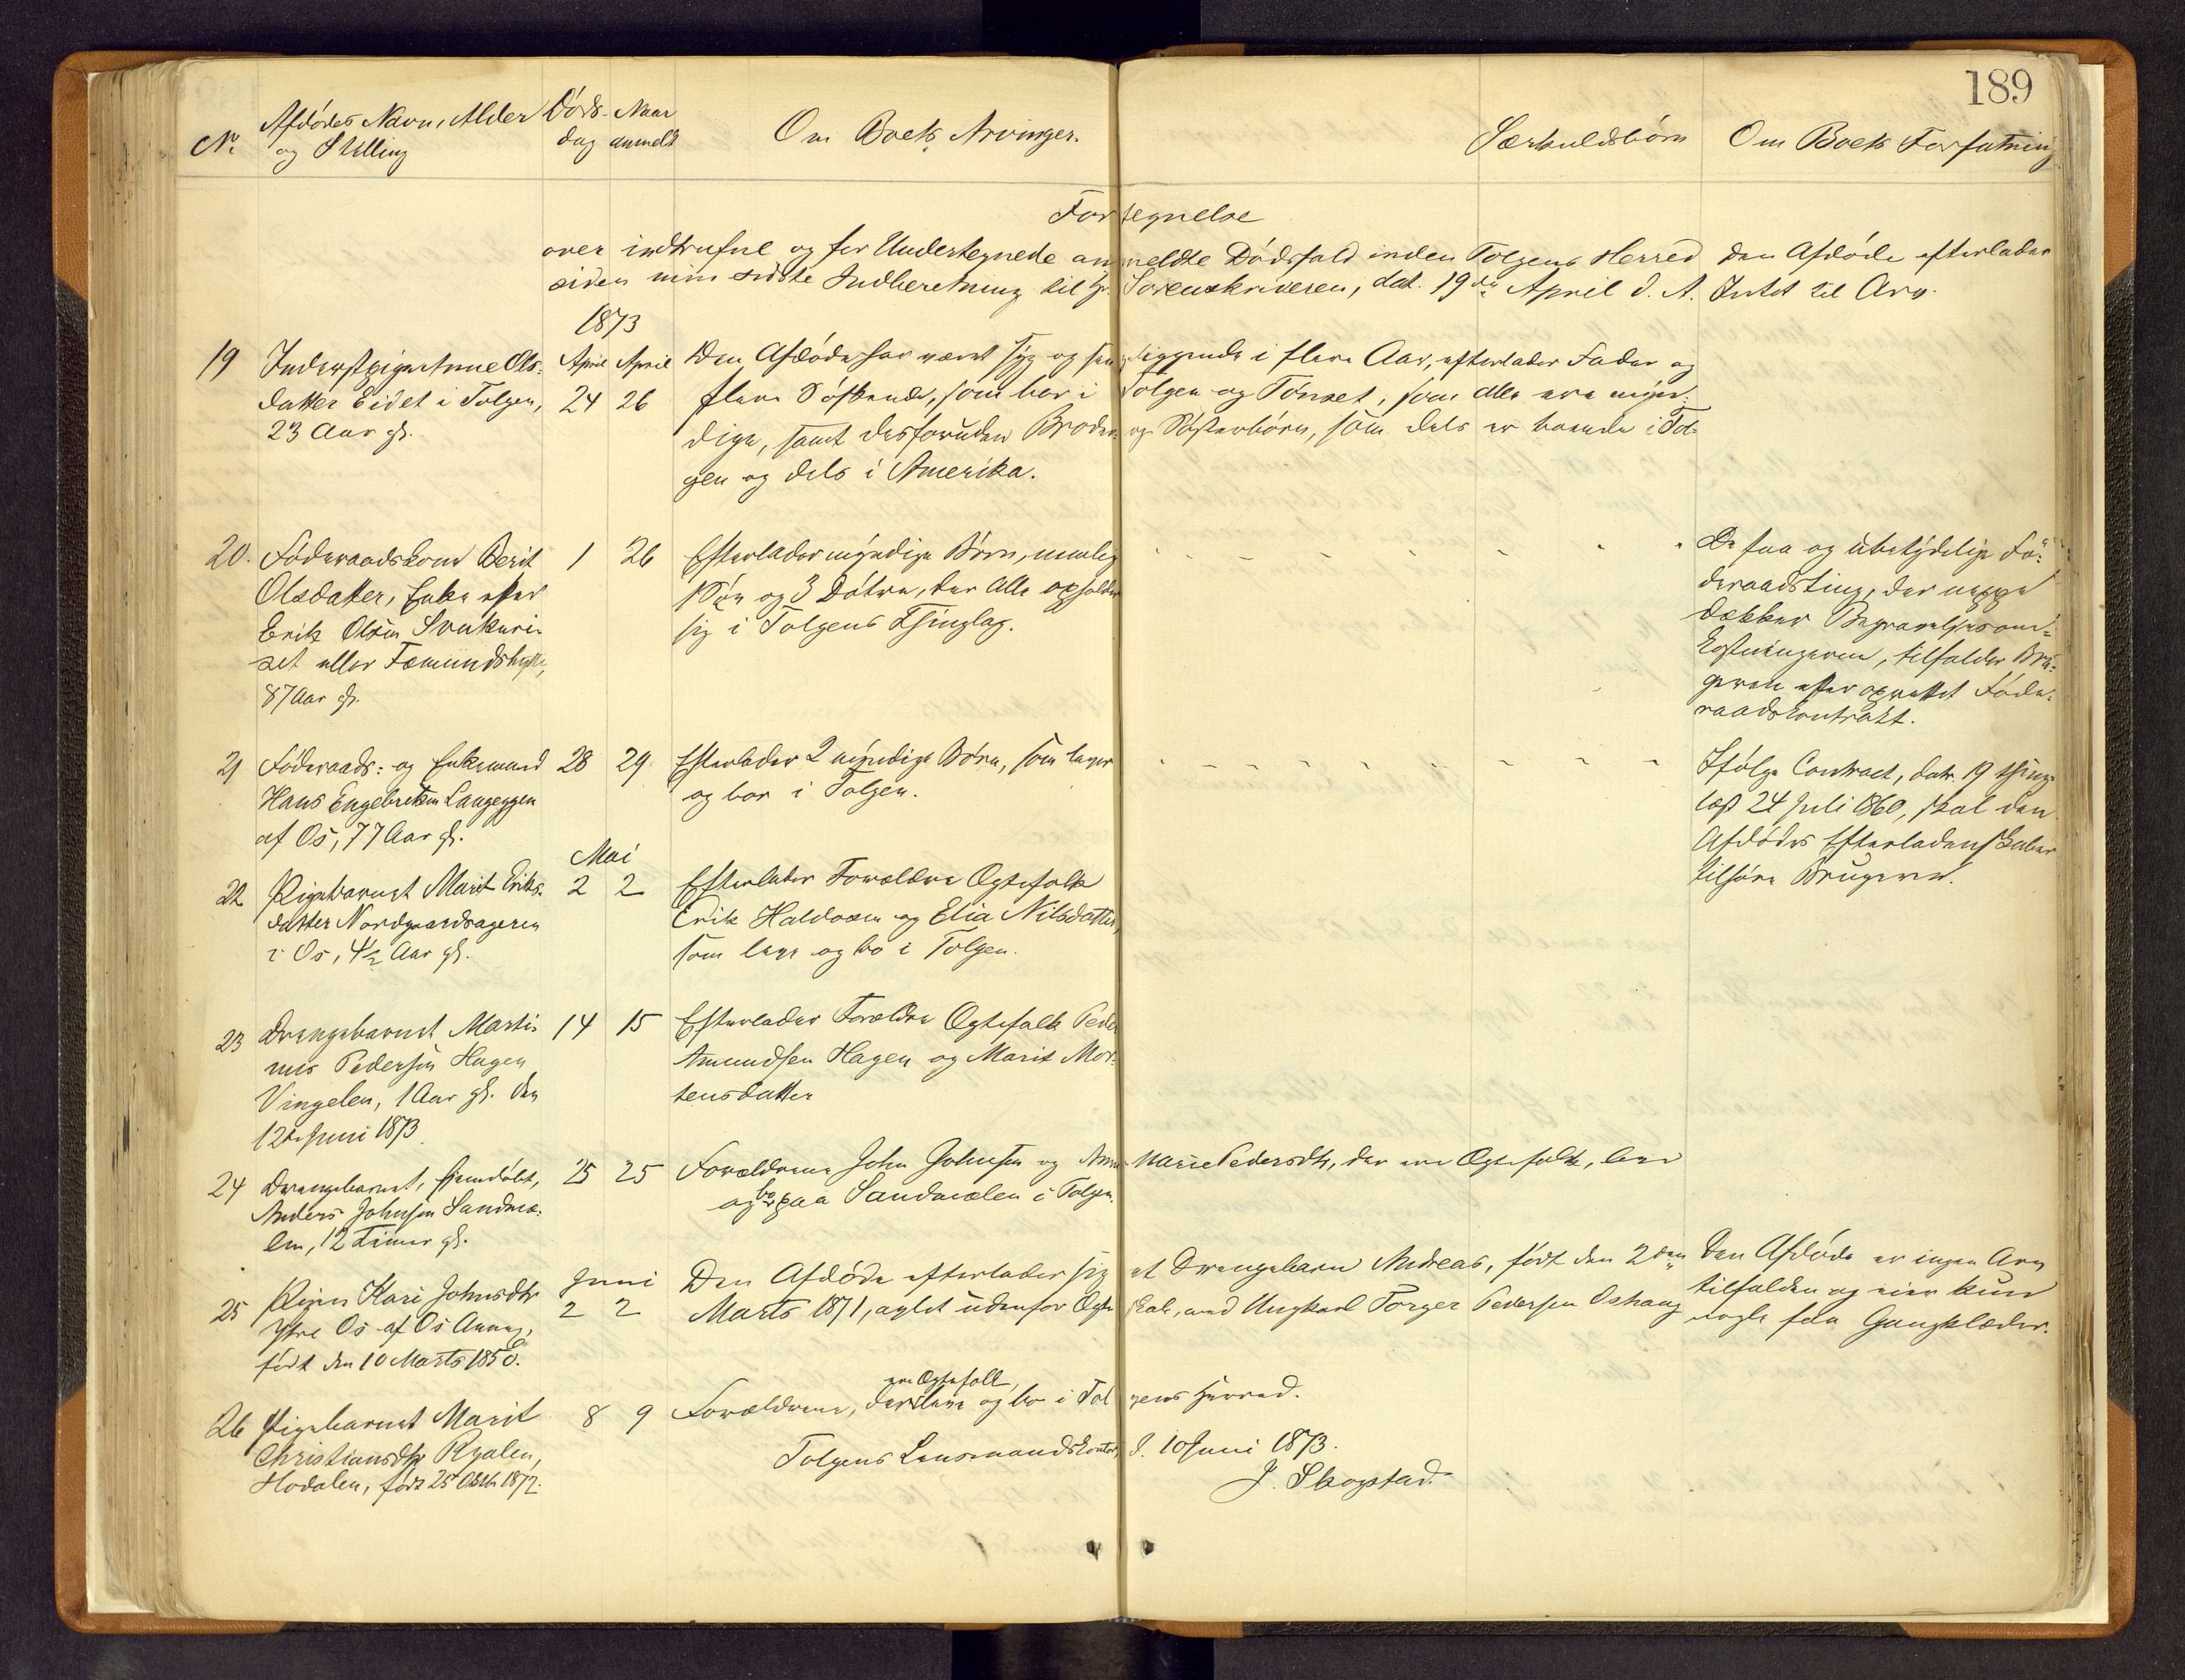 189
No Afdødes Navn, Alder og Stilling
Døds- dag
Naar anmeldt
Om Boets Arvinger.
Særkuldsbørn
Om Boets Forfatning
Fortegnelse
over indtrufne og for Undertegnede anmeldte Dødsfald inden Tolgens Herred
siden min sidste Indberetning til Hr. Sorenskriveren, dat. 19de April d. A.
Den Afdøde efterlader
Intet til Arv.
1873
19 Inderstpige Anne Ols-
datter Eidet i Tolgen,
23 Aar gl.
April 24
April 26
Den Afdøde har været syg og sengeliggende i flere Aar, efterlader Fader og
flere Søskende, som bor i Tolgen og Tønset, som alle ere myn-
dige, samt desforuden Broder- og Søsterbørn, som dels er boende i Tol-
gen og dels i Amerika.
20. Føderaadskone Berit
Olsdatter, Enke efter
Erik Olsen Svukuri-
set eller Fæmundshytte,
87 Aar gl.
1 26
Efterlader myndige Børn, nemlig
1 Søn og 3 Døtre, der Alle opholder
sig i Tolgens Thinglag.
De faa og ubetydelige Fø-
deraadsting, der neppe
dækker Begravelsesom-
kostningerne, tilfalder Bru-
geren efter oprettet Føde-
raadskontrakt.
21 Føderaads- og Enkemand
Hans Engebretsen Langeggen
af Os, 77 Aar gl.
28 29.
Efterlader 2 myndige Børn, som lever
og bor i Tolgen.
Ifølge Contract, datr. 19 thing-
læst 24 Juli 1860, skal den
Afdødes Efterladenskaber
tilhøre Brugeren.
Mai
22 Pigebarnet Marit Eriks-
datter Nordgaardsageren
i Os, 4½ Aar gl.
2 2
Efterlader Forældre Ægtefolk
Erik Haldosen og Elia Nilsdatter,
som leve og bo i Tolgen.
23 Drengebarnet Marti-
nus Pedersen Hagen
Vingelen, 1 Aar gl. den
12te Juni 1873.
14 15
Efterlader Forældre Ægtefolk Peder
Amundsen Hagen og Marit Mor-
tensdatter
24 Drengebarnet, hjemdøbt,
Anders Johnsen Sandmæ-
len, 12 Timer gl.
25 25
Forældrene John Johnsen og Anne Marie Pedersdtr, der ere Ægtefolk, leve
og bo paa Sandmælen i Tolgen.
Juni
25 Pigen Kari Johnsdtr
Ytre Os af Os Annex,
født den 10 Marts 1850.
2 2
Den Afdøde efterlader sig et Drengebarn Andreas, født den 2den
Marts 1871, avlet udenfor Ægteskab, med Ungkarl Torger Pedersen Oshaug
Den Afdøde er ingen Arv
tilfalden og eier kun
nogle faa Gangklæder.
26 Pigebarnet Marit
Christiansdtr Ryalen,
Hodalen, født 25 Oktbr 1872.
8 9
Forældrene, der ere Ægtefolk, leve og bo i Tolgens Herred.
Tolgens Lensmandskontor, d. 10 Juni 1873.
J. Skogstad.